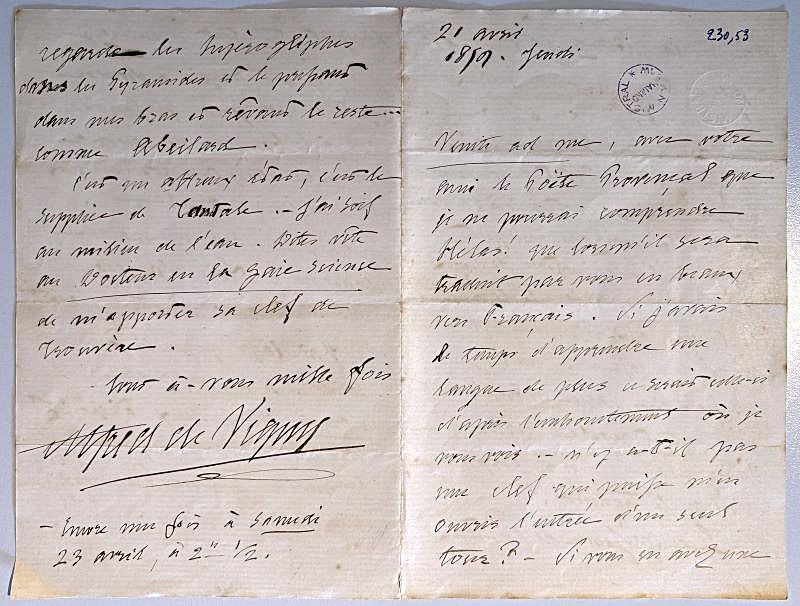 230,53
21 avril
1859. Jeudi
Venite ad me, avec votre
ami le Poëte Provençal que
je ne pourrai comprendre
hélas! que lorsqu'il sera
traduit par vous en beaux
vers français. Si j'avais
le temps d'apprendre une
langue de plus ce serait celle-ci
d'après l'enchantement où je
vous vois. - n'y a-t-il pas
une clef qui puisse m'en
ouvrir l'entrée d'un seul
tour? - Si vous en avez une
regarde les hiéroglyphes
dans les Pyramides et le pressant
dans mes bras et rêvant le reste...
comme Abeilard.
C'est un affreux état, c'est le
supplice de Tantale. - J'ai soif
au milieu de l'eau. Dites vite
au Docteur en la gaie science
de m'apporter sa clef de
Trouvère.
Tout à vous mille fois
Alfred de Vigny
- Encore une fois à samedi
23 avril, à 2h 1/2.